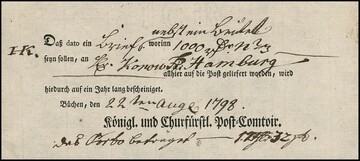 nebst ein Beutel
1 K. Daß dato ein Brief worinn 1000
seyn sollen, an Hr. Konow Hamburg
allhier auf die Post geliefert worden, wird
hiedurch auf ein Jahr lang bescheiniget.
Büchen, den 22ten Aug. 1798.
Königl. und Churfürstl. Post-Comtoir.
das Porto beträget